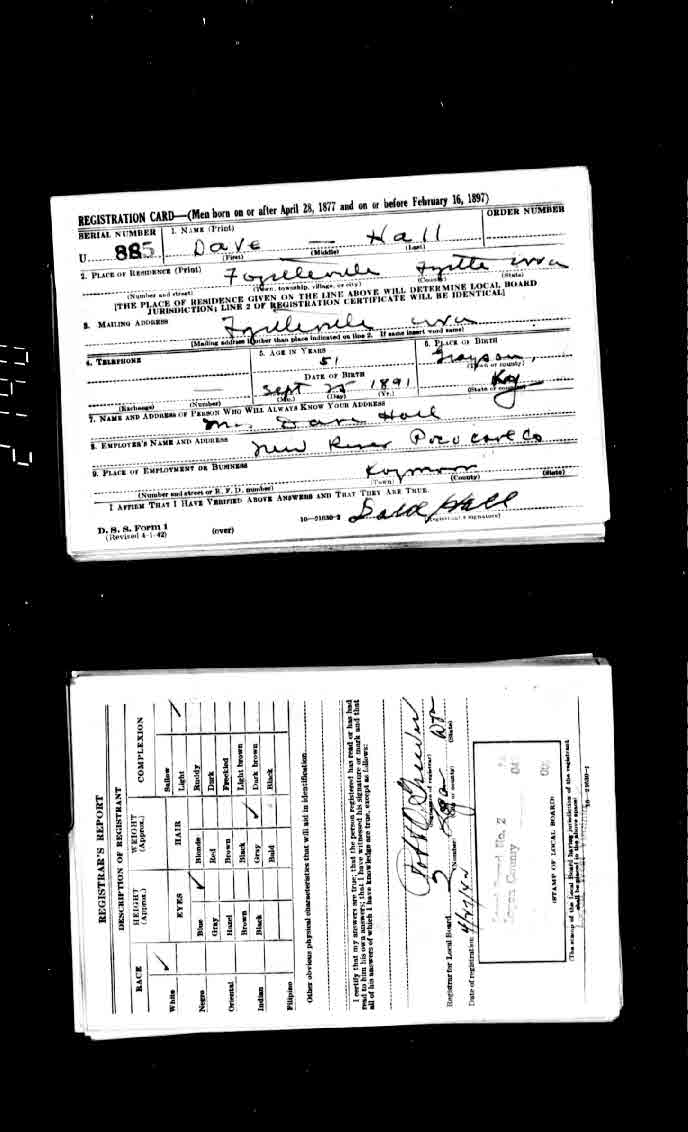 REGISTRATION CARD—(Men born on or after April 28, 1877 and on or before February 16, 1897)
SERIAL NUMBER 1. NAME (Print) ORDER NUMBER
U 885 Dave — Hall
(First) (Middle) (Last)
2. PLACE OF RESIDENCE (Print)
(Number and street) (Town, township, village, or city) (County) (State)
[THE PLACE OF RESIDENCE GIVEN ON THE LINE ABOVE WILL DETERMINE LOCAL BOARD
JURISDICTION; LINE 2 OF REGISTRATION CERTIFICATE WILL BE IDENTICAL]
3. MAILING ADDRESS
(Mailing address if other than place indicated on line 2. If same insert word same)
4. TELEPHONE 5. AGE IN YEARS 6. PLACE OF BIRTH
51 Grayson,
(Town or county)
DATE OF BIRTH
Sept 25 1891 Ky
(Exchange) (Number) (Mo.) (Day) (Yr.) (State or country)
7. NAME AND ADDRESS OF PERSON WHO WILL ALWAYS KNOW YOUR ADDRESS
Mrs Dave Hall
8. EMPLOYER'S NAME AND ADDRESS
New River Poco Co
9. PLACE OF EMPLOYMENT OR BUSINESS
(Number and street or R. F. D. number) (Town) (County) (State)
I AFFIRM THAT I HAVE VERIFIED ABOVE ANSWERS AND THAT THEY ARE TRUE.
Dave Hall
D. S. S. Form 1 16—21630-2 (Registrant's signature)
(Revised 4-1-42) (over)
REGISTRAR'S REPORT
DESCRIPTION OF REGISTRANT
RACE HEIGHT (Approx.) WEIGHT (Approx.) COMPLEXION
White ✓ EYES HAIR Sallow
Light ✓
Negro Blue ✓ Blonde Ruddy
Oriental Gray Red Dark
Hazel Brown Freckled
Indian Brown Black Light brown
Black Gray ✓ Dark brown
Filipino Bald Black
Other obvious physical characteristics that will aid in identification
I certify that my answers are true; that the person registered has read or has had
read to him his own answers; that I have witnessed his signature or mark and that
all of his answers of which I have knowledge are true, except as follows:
(Signature of registrar)
Registrar for Local Board 2 Logan
(Number) (City or county) (State)
Date of registration 4/27/42
Local Board No. 2
Logan County
(STAMP OF LOCAL BOARD)
(The stamp of the Local Board having jurisdiction of the registrant
shall be placed in the above space)
16—21630-1